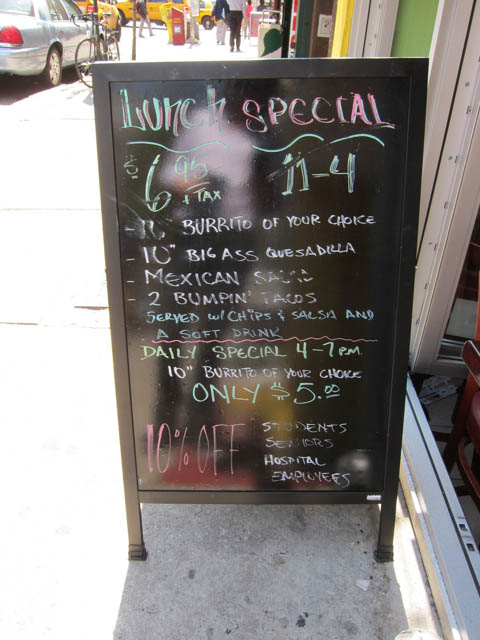 LUNCH SPECIAL
$6.95 + TAX 11-4
BURRITO OF YOUR CHOICE
- 10" BIG ASS QUESADILLA
- MEXICAN
- 2 BUMPIN' TACOS
SERVED W/ CHIPS & SALSA AND
A SOFT DRINK
DAILY SPECIAL 4-7 P.M.
10" BURRITO OF YOUR CHOICE
ONLY $5.00
10% OFF
STUDENTS
SENIORS
HOSPITAL
EMPLOYEES